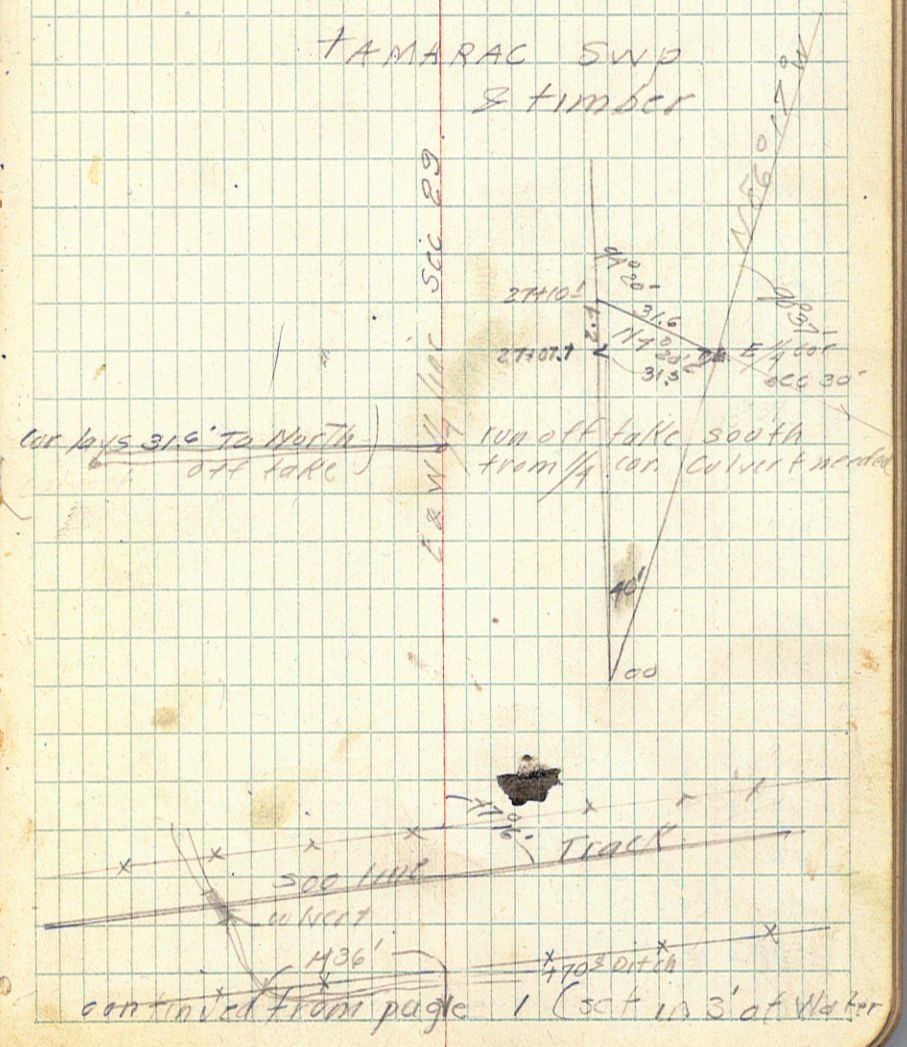 TAMARAC Swp
& timber
N 86° 17' W
E & W 1/4 line Sec 29.
91° 20'
27+10'
31.6
2.9
27+07.1
31.5
90° 37'
E 1/4 cor
Sec 30
Cor lays 31.6' To North
off take
run off take south
from 1/4 cor. Culvert needed
40'
00
77° 16'
Track
Soo line
culvert
H36'
+70 & Ditch
continued from pagle 1 (set in 3' of Water